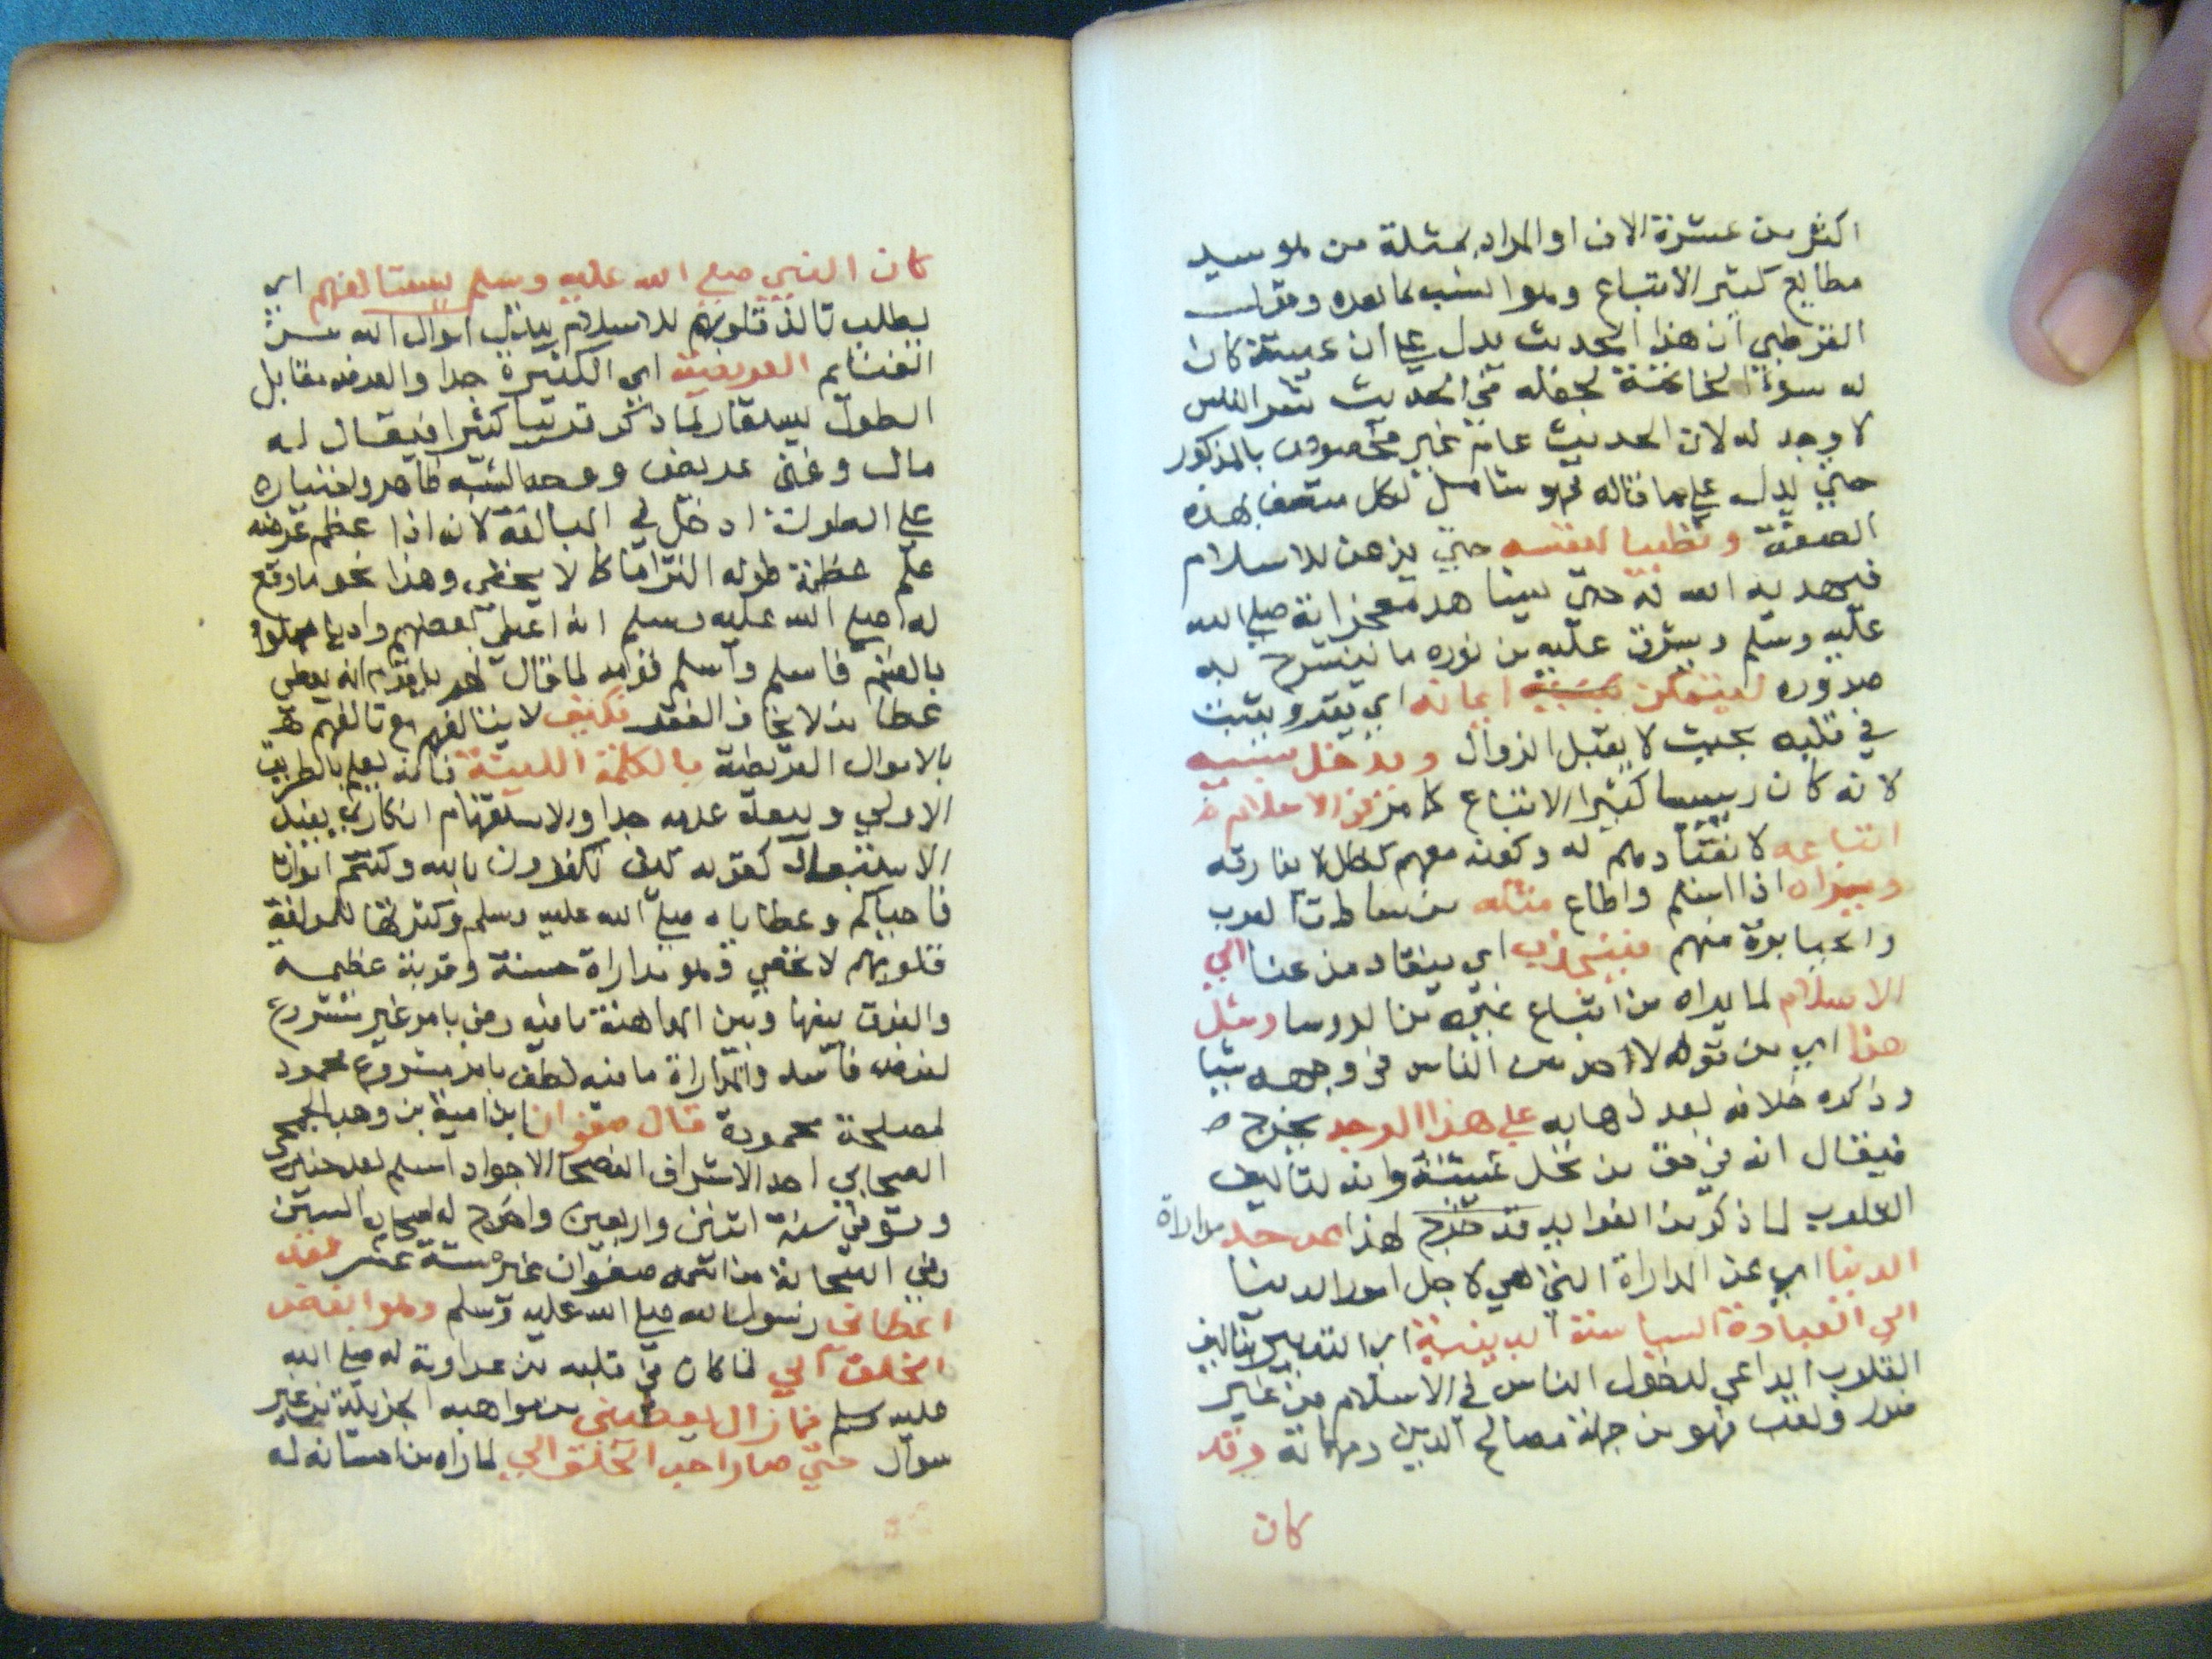 اكثر من عشرة الاف او المراد بمثله من هو سيد
مطاع كثير الاتباع وهو انسب لما بعده وقول
القرطبي ان هذا الحديث يدل علي ان عيينة كان
له سوء الخاتمة لجعله في الحديث شر الناس
لا وجه له لان الحديث عام غير مخصوص بالمذكور
حتي يدل علي ما قاله فهو شامل لكل متصف بهذه
الصفة وتطييبا لنفسه حتي يذعن للاسلام
فيهديه الله له حتي يشاهد معجزاته صلي الله
عليه وسلم ويشرق عليه من نوره ما ينشرح به
صدوره ليتمكن ايمانه اي يقر ويثبت
في قلبه بحيث لا يقبل الزوال ويدخل بسببه
لانه كان رييسا كثير الاتباع كما مر في الاسلام
اتباعه لانقيادهم له وكونه معهم لا يفارقه
ويراه اذا اسلم واطاع مثله من العرب
والجبابرة منهم فينجذب اي ينقاد من عنا الي
الاسلام لما يراه من اتباع غيره من الروسا ومثل
هذا اي من قوله لاحد من الناس في وجهه شيا
وذكره خلافه بعد ذهابه علي هذا الوجه يخرج
فيقال انه في حق من نحل عيينة وانه لتاليف
القلوب لما ذكر من الفوايد قد خرج لهذا عن حد مداراة
الدنيا اي عن المداراة التي هي لاجل امور الدنيا
الي العبادة السياسة الدينية اي التدبير بتاليف
القلوب الداعي لدخول الناس في الاسلام من غير
ضرر وتعب فهو من جملة مصالح الدين ومهماته وقد
كان
كان النبي صلي الله عليه وسلم يستالفهم اي
يطلب تالف قلوبهم للاسلام ببذل اموال الله من
الغنايم العريضة اي الكثيرة جدا والعرض مقابل
الطول يستعار لما ذكر كثيرا فيقال له
مال وغني عريض ووجه الشبه ظاهر واختياره
علي الطول ادخل في المبالغة لانه اذا عظم عرضه
علم عظمة طوله التزاما كما لا يخفي وهذا نحو ما وقع
له صلي الله عليه وسلم انه اعطي بعضهم واديا مملوا
بالغنم فاسلم واسلم قومه لما قال لهم انه يعطي
عطا من لا يخاف الفقر فكيف لا يتالفهم مع تالفهم
بالاموال العريضة بالكلمة اللينة فانه يعلم بالطريق
الاولي ويبعد عدمه جدا والاستفهام انكاري يفيد
الاستبعاد كقوله كيف تكفرون بالله وكنتم امواتا
فاحياكم وعطاياه صلي الله عليه وسلم وكثرتها للمولفة
قلوبهم لا تخفي وهو مداراة حسنة وقربة عظيمة
والفرق بينها وبين المداهنة ما فيه رضي بامر غير مشروع
لغرض فاسد والمداراة ما فيه لطف بامر مشروع محمود
لمصلحة محمودة قال صفوان ابن امية بن وهب الجمحي
الصحابي احد الاشراف الفصحا الاجواد اسلم بعد حنين
وتوفي سنة اثنين واربعين واخرج له اصحاب السنن
وفي الصحابة من اسمه صفوان غيره ستة عشر لقد
اعطاني رسول الله صلي الله عليه وسلم وهو ابغض
الخلق الي لما كان في قلبه من عداوته له صلي الله
عليه وسلم فما زال يعطيني من مواهبه الجزيلة من غير
سوال حتي صار احب الخلق الي لما راه من احسانه له